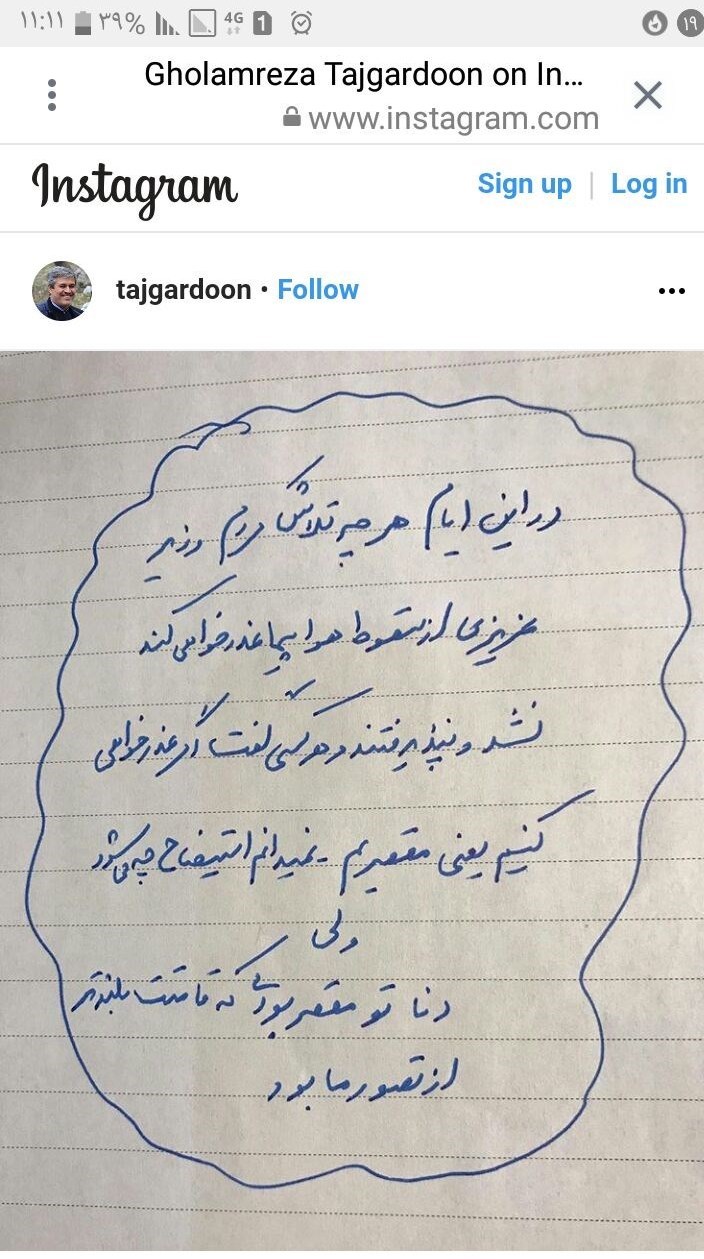 ۱۱:۱۱ ۳۹% 4G 1 ۱۹
Gholamreza Tajgardoon on In...
www.instagram.com
Instagram
Sign up | Log in
tajgardoon • Follow
در این ایام هر چه تلاش کردم وزیر
عزیزی از سقوط هواپیما عذرخواهی کند
نشد و نپذیرفتند و هر کسی گفت اگر عذرخواهی
کنیم یعنی مقصریم - نمیدانم استیضاح چه می شود
ولی
دنا تو مقصر بودی که قامتت بلندتر
از تصور ما بود